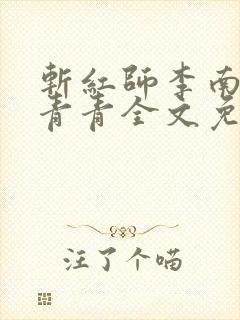 斬紅師李南
青青全文免
注了个喵